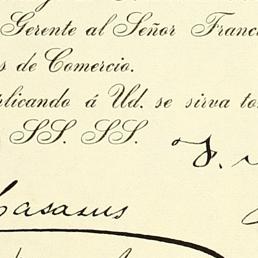 Gerente al Señor Franci
s de Comercio.
plicando á Ud. se sirva to
SS. SS.
Casasus